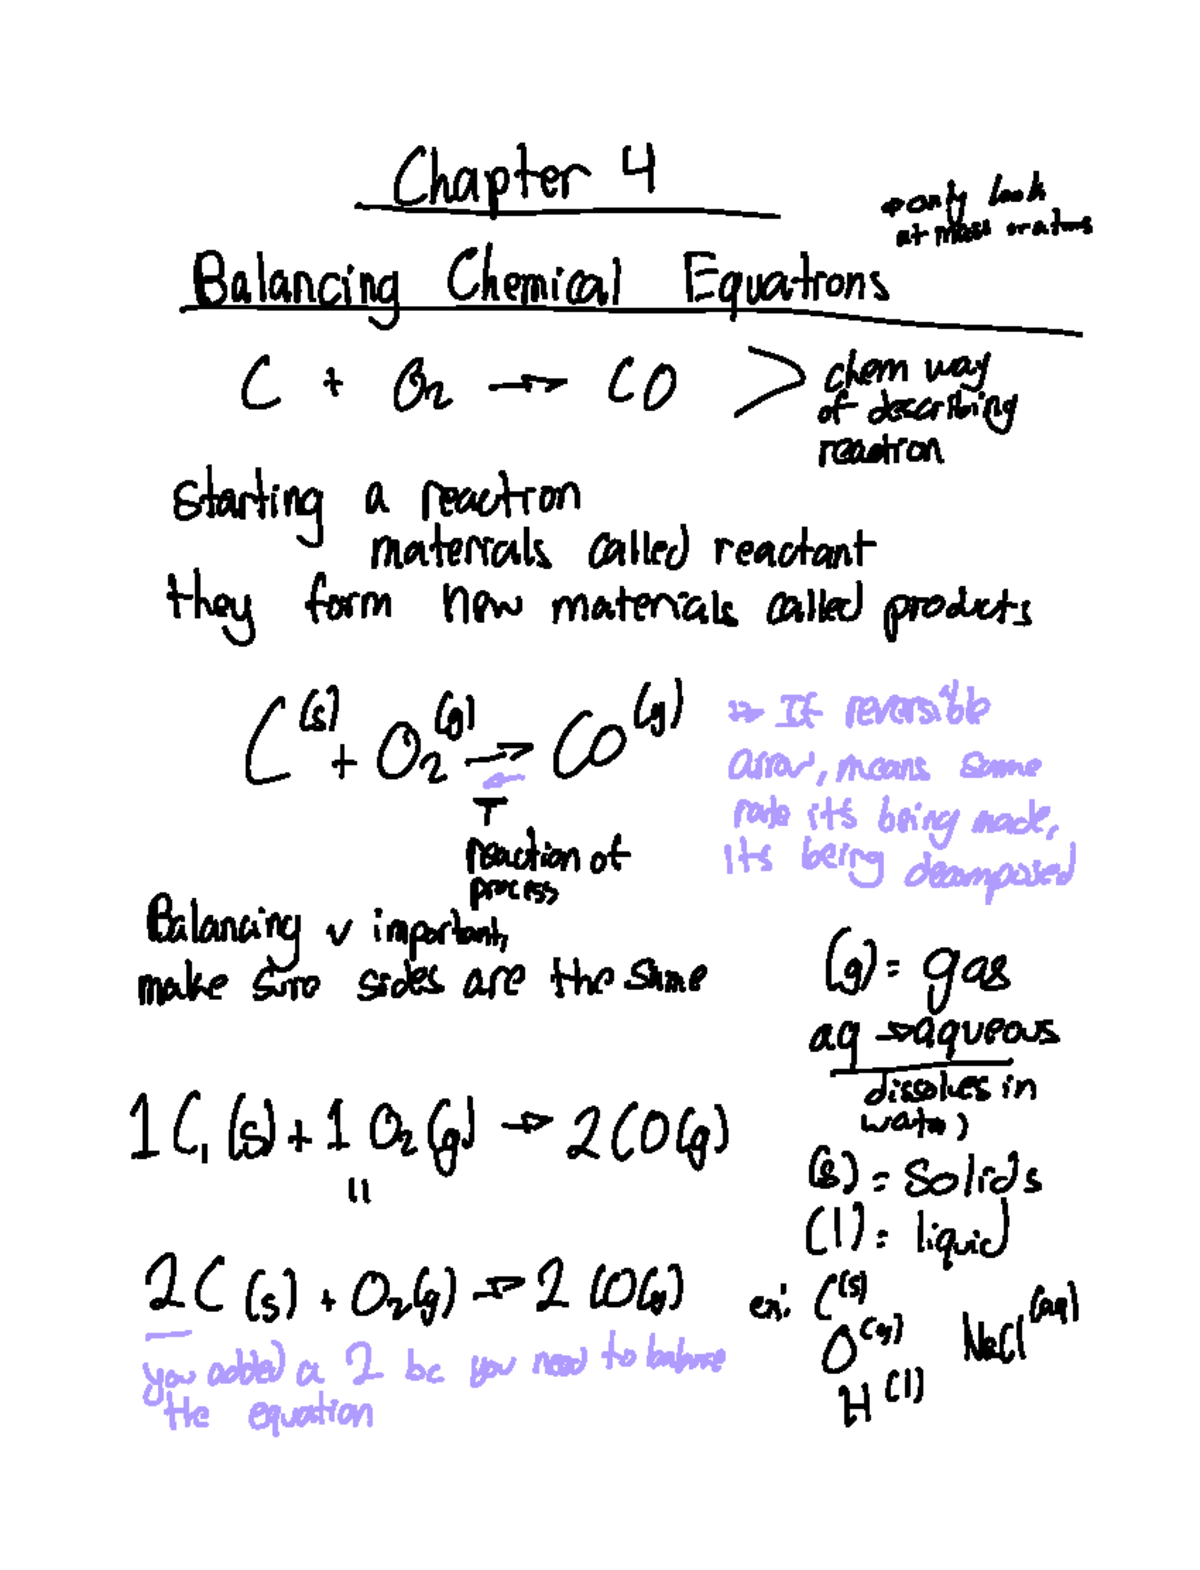 Chapter 4
→only look
at mass or atoms
Balancing Chemical Equations
C + O2 → CO > chem way
of describing
reaction
Starting a reaction
materials called reactant
they form new materials called products
C(s) + O2(g) → CO(g)
If reversible
arrow, means same
rate it's being made,
its being decomposed
↑
reaction of
process
Balancing v important,
make sure sides are the same
(g) = gas
aq → aqueous
dissolves in
water)
(s) = solids
(l) = liquid
1C1(s) + 1O2(g) → 2CO(g)
11
2C(s) + O2(g) → 2CO(g)
you added a 2 bc you need to balance
the equation
ex: C(s)
O(g) NaCl(aq)
H(l)